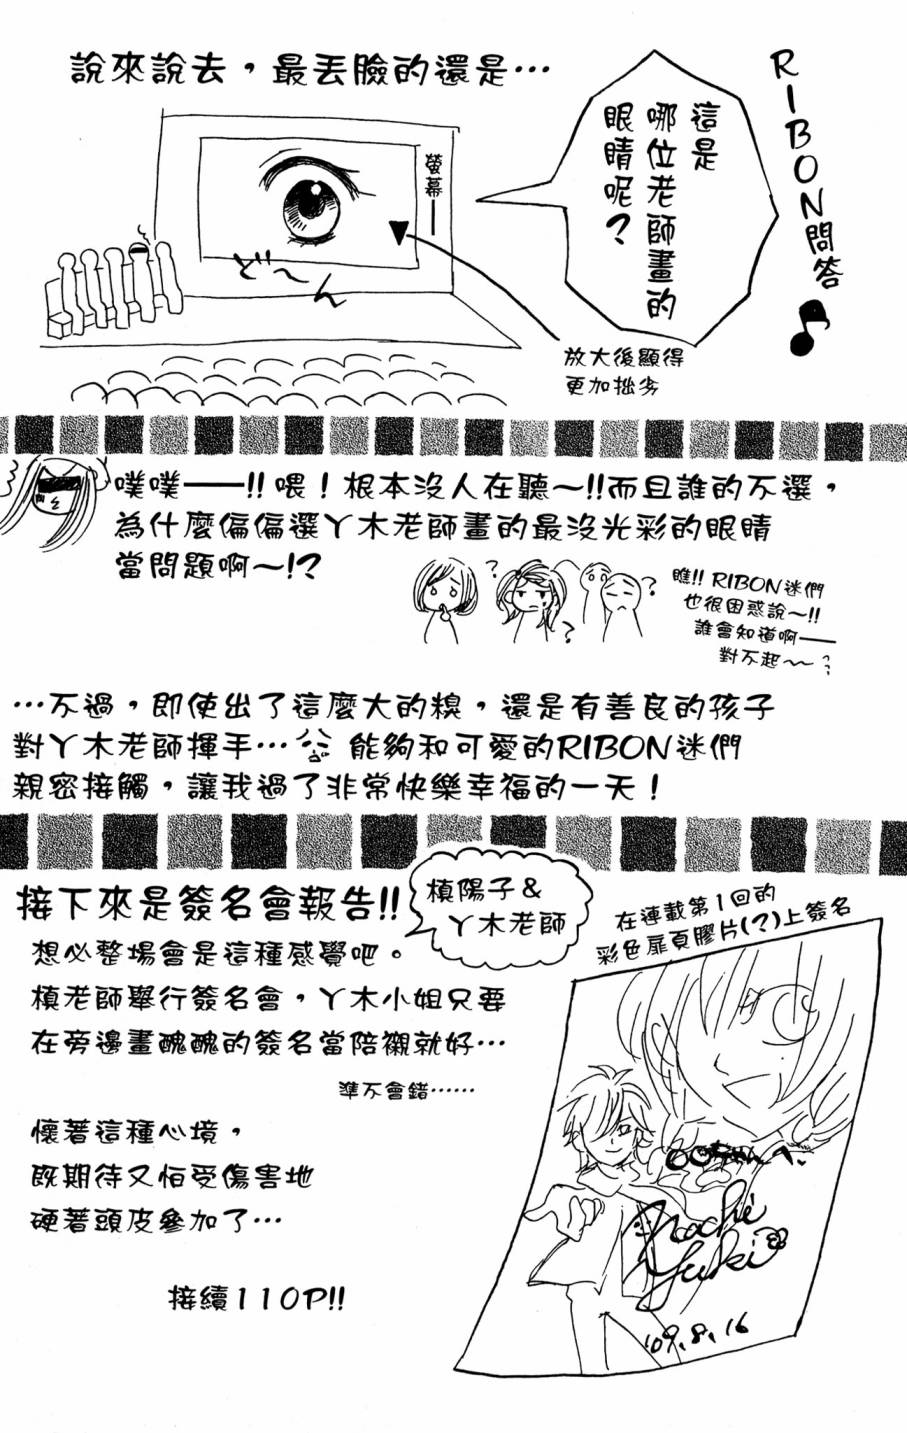 說來說去，最丟臉的還是…
RIBON問答♪
這是
哪位老師畫的
眼睛呢？
螢幕——
ど〜ん
放大後顯得
更加拙劣
噗噗——!!喂！根本沒人在聽～!!而且誰的不選，
為什麼偏偏選丫木老師畫的最沒光彩的眼睛
當問題啊～!?
瞧!! RIBON迷們
也很困惑說～!!
誰會知道啊——
對不起～～
…不過，即使出了這麼大的糗，還是有善良的孩子
對丫木老師揮手… 能夠和可愛的RIBON迷們
親密接觸，讓我過了非常快樂幸福的一天！
接下來是簽名會報告!!
槙陽子&
丫木老師
想必整場會是這種感覺吧。
槙老師舉行簽名會，丫木小姐只要
在旁邊畫醜醜的簽名當陪襯就好…
準不會錯……
懷著這種心境，
既期待又怕受傷害地
硬著頭皮參加了…
接續110P!!
在連載第1回的
彩色扉頁膠片(?)上簽名
Yuki
'09.8.16